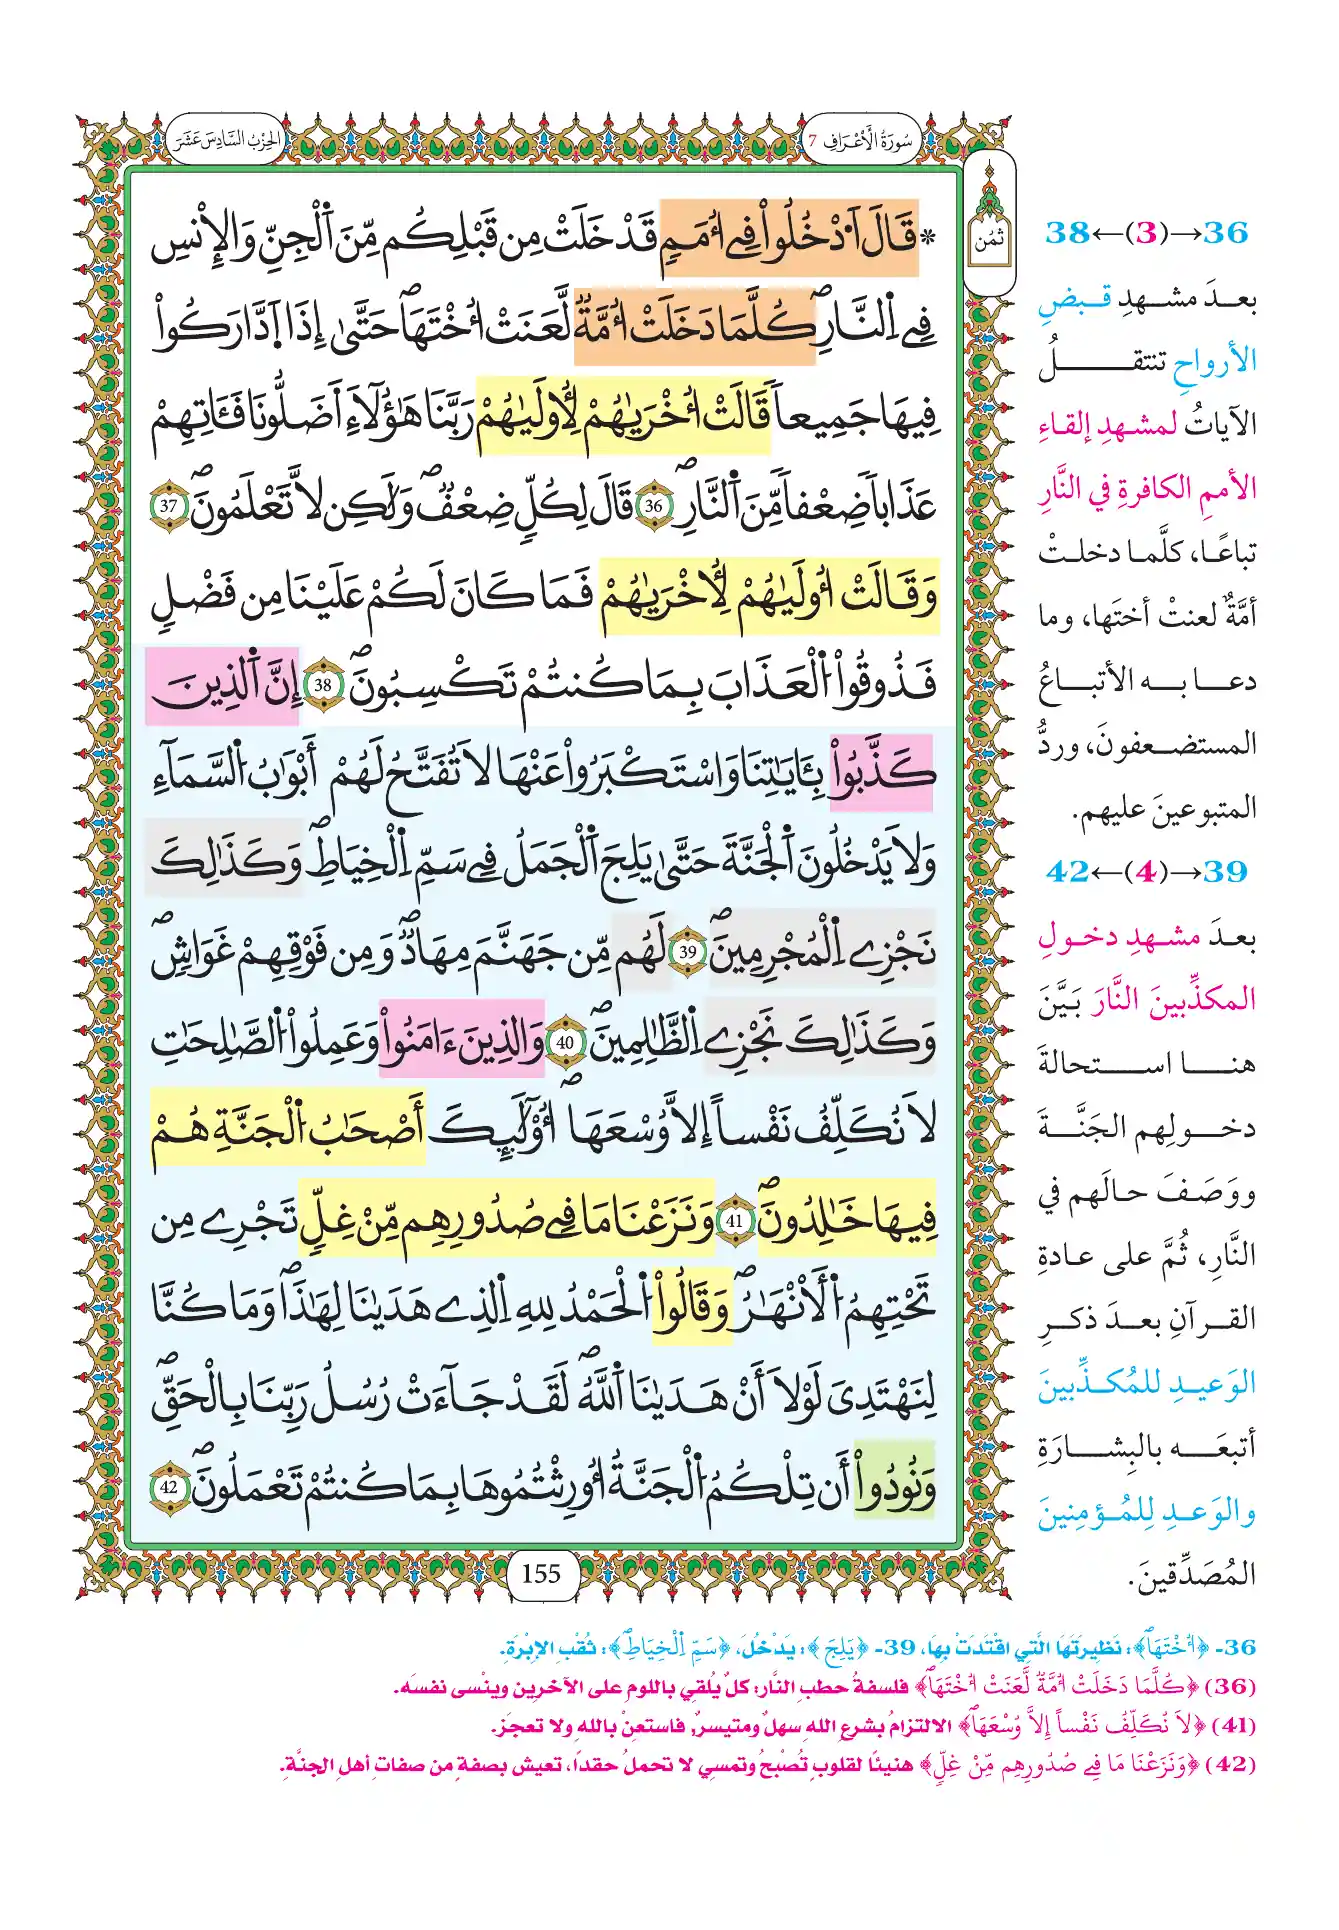 سُورَةُ الَاعْرَافِ 7
الحِزْبُ السَّادِسَ عَشَرَ
ثمُن
* قَالَ اَدْخُلُواْ فِے أُمَمٖ قَدْ خَلَتْ مِن قَبْلِكُم مِّنَ اَلْجِنِّ وَالِانْسِ
فِے اِلنّ۪ارِۖ كُلَّمَا دَخَلَتُ امَّةٞ لَّعَنَتُ اخْتَهَاۖ حَتَّىٰ إِذَا اَ۪دَّارَكُواْ
فِيهَا جَمِيعاٗ قَالَتُ اخْر۪يٰهُمْ لِأُول۪يٰهُمْ رَبَّنَا هَٰٓؤُلَآءِ اَضَلُّونَا فَـَٔاتِهِمْ
عَذَاباٗ ضِعْفاٗ مِّنَ اَلنّ۪ارِۖ 36 قَالَ لِكُلّٖ ضِعْفٞۖ وَلَٰكِن لَّا تَعْلَمُونَۖ 37
وَقَالَتُ اول۪يٰهُمْ لِأُخْر۪يٰهُمْ فَمَا كَانَ لَكُمْ عَلَيْنَا مِن فَضْلٖ
فَذُوقُواْ اُلْعَذَابَ بِمَا كُنتُمْ تَكْسِبُونَۖ 38 إِنَّ اَلذِينَ
كَذَّبُواْ بِـَٔايَٰتِنَا وَاسْتَكْبَرُواْ عَنْهَا لَا تُفَتَّحُ لَهُمُۥٓ أَبْوَٰبُ اُلسَّمَآءِ
وَلَا يَدْخُلُونَ اَلْجَنَّةَ حَتَّىٰ يَلِجَ اَلْجَمَلُ فِے سَمِّ اِلْخِيَاطِۖ وَكَذَٰلِكَ
نَجْزِے اِلْمُجْرِمِينَۖ 39 لَهُم مِّن جَهَنَّمَ مِهَادٞ وَمِن فَوْقِهِمْ غَوَاشٖۖ
وَكَذَٰلِكَ نَجْزِے اِلظَّٰلِمِينَۖ 40 وَالذِينَ ءَامَنُواْ وَعَمِلُواْ اُلصَّٰلِحَٰتِ
لَا نُكَلِّفُ نَفْساً اِلَّا وُسْعَهَآ أُوْلَٰٓئِكَ أَصْحَٰبُ اُلْجَنَّةِ هُمْ
فِيهَا خَٰلِدُونَۖ 41 وَنَزَعْنَا مَا فِے صُدُورِهِم مِّنْ غِلّٖ تَجْرِے مِن
تَحْتِهِمُ اُلَانْهَٰرُۖ وَقَالُواْ اُلْحَمْدُ لِلهِ اِلذِے هَد۪يٰنَا لِهَٰذَاۖ وَمَا كُنَّا
لِنَهْتَدِيَ لَوْلَآ أَنْ هَد۪يٰنَا اَللَّهُۖ لَقَدْ جَآءَتْ رُسُلُ رَبِّنَا بِالْحَقِّۖ
وَنُودُوٓاْ أَن تِلْكُمُ اُلْجَنَّةُ أُورِثْتُمُوهَا بِمَا كُنتُمْ تَعْمَلُونَۖ 42
155
36→(3)←38
بعدَ مشهدِ قبضِ
الأرواحِ تنتقلُ
الآياتُ لمشهدِ إلقاءِ
الأممِ الكافرةِ في النَّارِ
تباعًا، كلَّما دخلتْ
أمَّةٌ لعنتْ أختَها، وما
دعا به الأتباعُ
المستضعفونَ، وردُّ
المتبوعينَ عليهم.
39→(4)←42
بعدَ مشهدِ دخولِ
المكذِّبينَ النَّارَ بَيَّنَ
هنا استحالةَ
دخولِهم الجَنَّةَ
ووَصَفَ حالَهم في
النَّارِ، ثُمَّ على عادةِ
القرآنِ بعدَ ذكرِ
الوَعيدِ للمُكذِّبينَ
أتبعَه بالبِشارَةِ
والوَعدِ لِلمُؤمِنينَ
المُصَدِّقينَ.
36- ﴿اُخْتَهَاۖ﴾: نَظِيرَتَهَا الَّتِي اقْتَدَتْ بِهَا، 39- ﴿يَلِجَ﴾: يَدْخُلَ، ﴿سَمِّ اِلْخِيَاطِۖ﴾: ثُقْبِ الإِبْرَةِ.
(36) ﴿كُلَّمَا دَخَلَتُ امَّةٞ لَّعَنَتُ اخْتَهَاۖ﴾ فلسفةُ حطبِ النَّارِ: كلٌ يُلقي باللومِ على الآخرين وينْسى نفسَه.
(41) ﴿لَا نُكَلِّفُ نَفْساً اِلَّا وُسْعَهَآ﴾ الالتزامُ بشرعِ اللهِ سهلٌ ومتيسرٌ، فاستعنْ باللهِ ولا تعجَزْ.
(42) ﴿وَنَزَعْنَا مَا فِے صُدُورِهِم مِّنْ غِلّٖ﴾ هنيئًا لقلوبٍ تُصْبحُ وتمسِي لا تحملُ حقدًا، تعيش بصفةٍ من صفاتِ أهلِ الجنَّةِ.